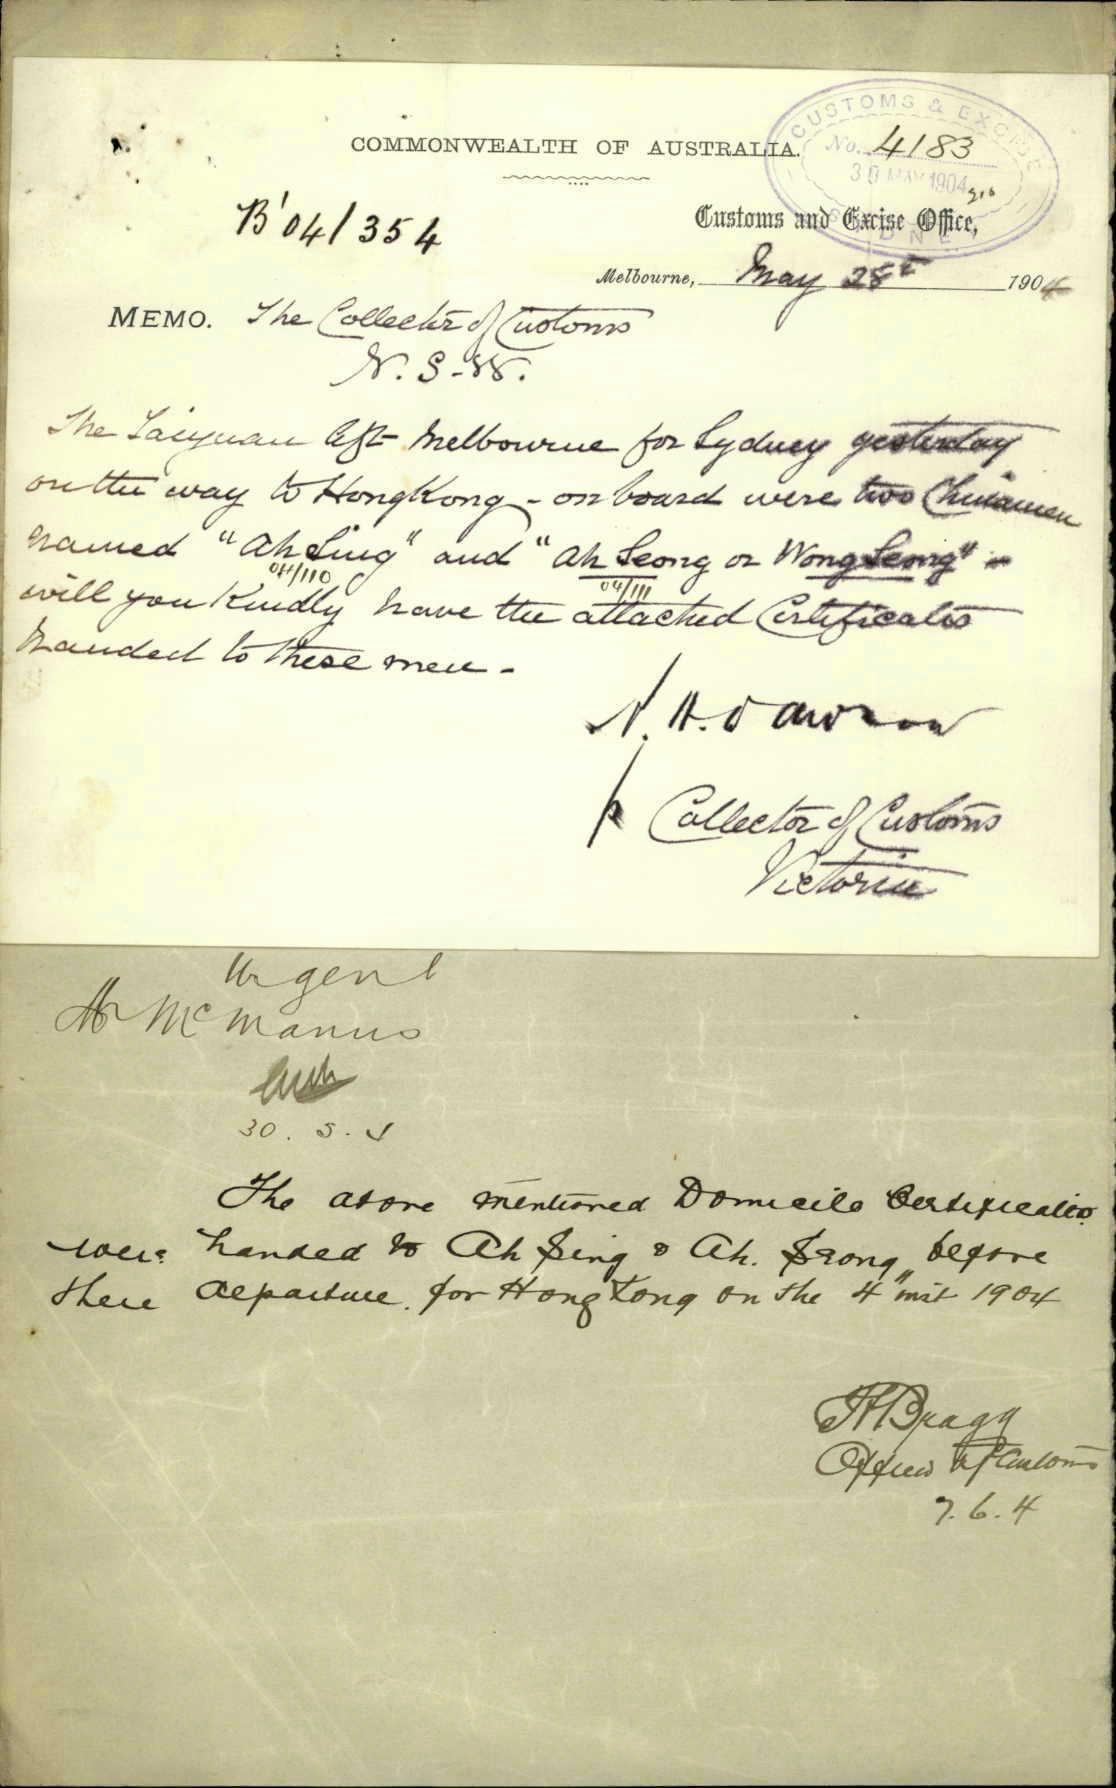 CUSTOMS & EXCISE
No. 4183
30 MAY 1904
SYDNEY
COMMONWEALTH OF AUSTRALIA.
B'04/354
Customs and Excise Office,
Melbourne, May 28th 1904
MEMO. The Collector of Customs
N. S. W.
The Taiyuan left Melbourne for Sydney yesterday
on the way to HongKong - on board were two Chinamen
named "Ah Sing" and "Ah Seong or Wong Seong" -
04/110 04/111
will you kindly have the attached Certificates
handed to these men -
N. H. Dawson
p Collector of Customs
Victoria
Urgent
Mr McManus
30. 5. 4
The above mentioned Domicile Certificates
were handed to Ah Sing & Ah. Seong before
there departure. for Hong Kong on the 4" inst 1904
Bragg
Officer of Customs
7. 6. 4